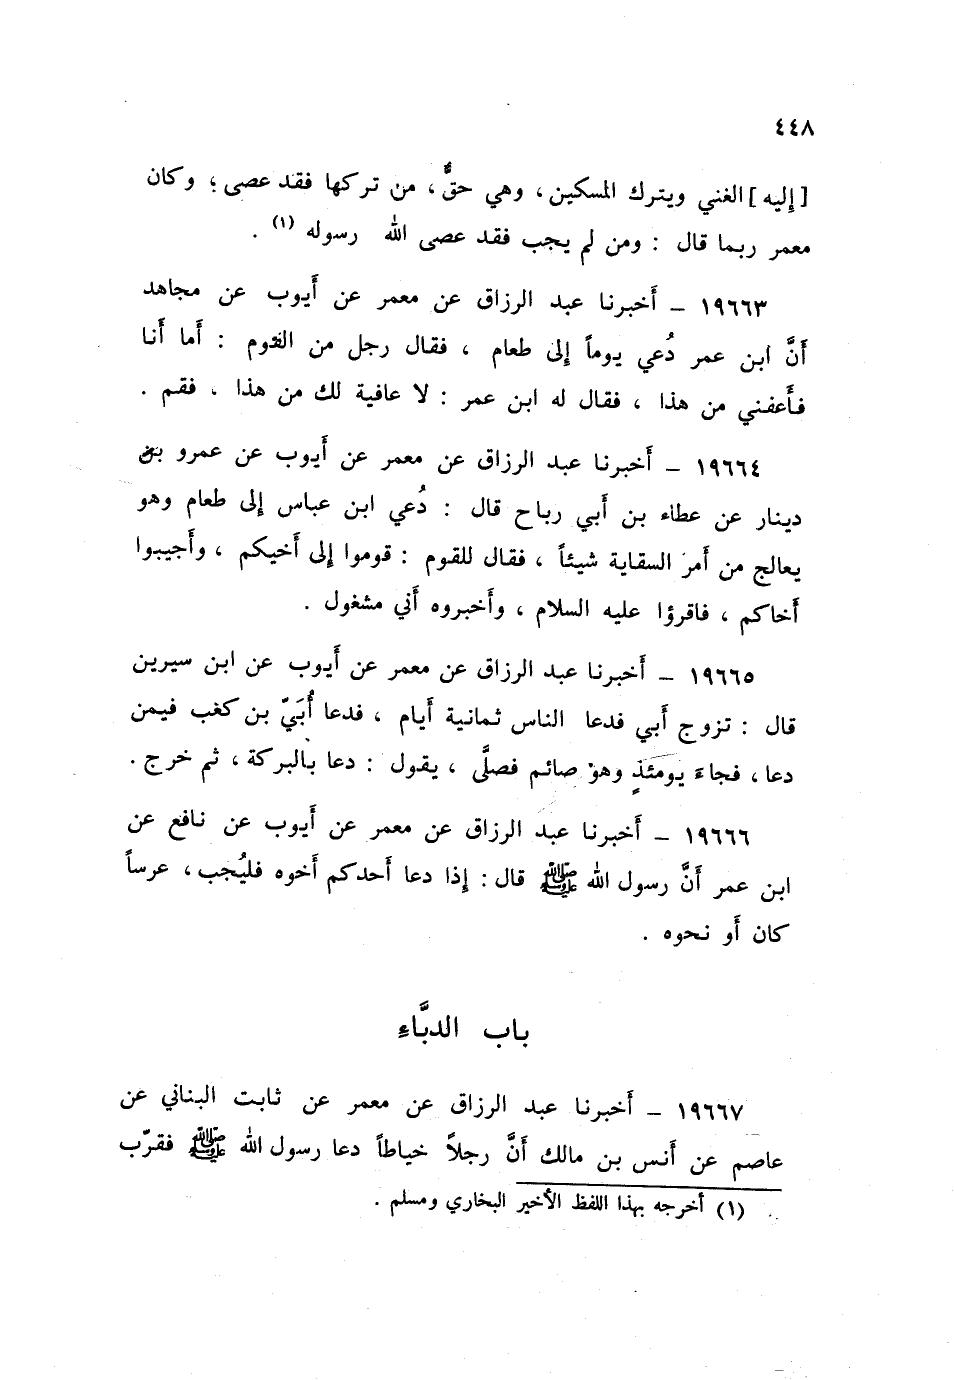 ٤٤٨
[إليه] الغني ويترك المسكين، وهي حقٌّ، من تركها فقد عصى؛ وكان
معمر ربما قال : ومن لم يجب فقد عصى الله رسوله (١) .
١٩٦٦٣ – أخبرنا عبد الرزاق عن معمر عن أيوب عن مجاهد
أنَّ ابن عمر دُعي يوماً إلى طعام ، فقال رجل من القوم : أما أنا
فأعفني من هذا ، فقال له ابن عمر : لا عافية لك من هذا ، فقم .
١٩٦٦٤ – أخبرنا عبد الرزاق عن معمر عن أيوب عن عمرو بن
دينار عن عطاء بن أبي رباح قال : دُعي ابن عباس إلى طعام وهو
يعالج من أمر السقاية شيئاً ، فقال للقوم : قوموا إلى أخيكم ، وأجيبوا
أخاكم ، فاقرؤا عليه السلام ، وأخبروه أني مشغول .
١٩٦٦٥ – أخبرنا عبد الرزاق عن معمر عن أيوب عن ابن سيرين
قال : تزوج أبي فدعا الناس ثمانية أيام ، فدعا أُبَيّ بن كعب فيمن
دعا ، فجاءَ يومئذٍ وهو صائم فصلَّى ، يقول : دعا بالبركة ، ثم خرج .
١٩٦٦٦ – أخبرنا عبد الرزاق عن معمر عن أيوب عن نافع عن
ابن عمر أنَّ رسول الله ﷺ قال : إذا دعا أحدكم أخوه فليُجب ، عرساً
كان أو نحوه .
باب الدبَّاءِ
١٩٦٦٧ – أخبرنا عبد الرزاق عن معمر عن ثابت البناني عن
عاصم عن أنس بن مالك أنَّ رجلاً خياطاً دعا رسول الله ﷺ فقرّب
(١) أخرجه بهذا اللفظ الأخير البخاري ومسلم .